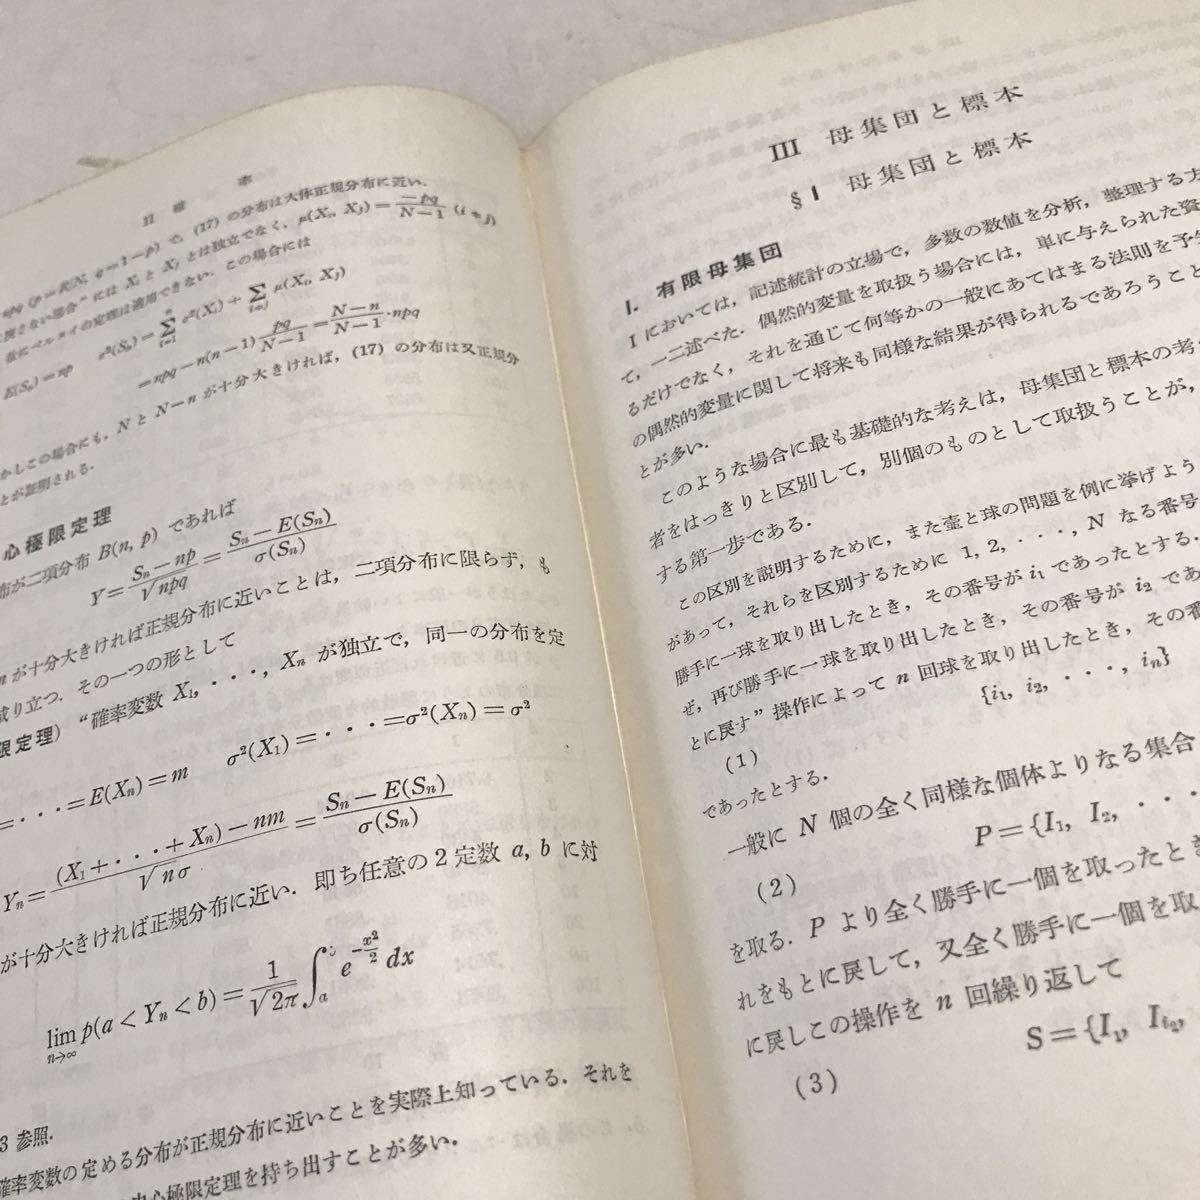 II 確 率
npq (p=R/N, q=1−p) で, (17) の分布は大体正規分布に近い.
戻さない場合”には Xᵢ と Xⱼ とは独立でなく, μ(Xᵢ, Xⱼ)=−pq/(N−1) (i≠j)
にベルヌイの定理は適用できない. この場合には
E(Sₙ)=np σ²(Sₙ)=∑ᵢ₌₁ⁿ σ²(Xᵢ)+∑ μ(Xᵢ, Xⱼ)
=npq−n(n−1) pq/(N−1)=(N−n)/(N−1)·npq
かしこの場合にも, N と N−n が十分大きければ, (17) の分布は又正規分
とが証明される.
心極限定理
布が二項分布 B(n, p) であれば
Y=(Sₙ−np)/√npq=(Sₙ−E(Sₙ))/σ(Sₙ)
n が十分大きければ正規分布に近いことは, 二項分布に限らず, も
成り立つ. その一つの形として
限定理) “確率変数 X₁, ···, Xₙ が独立で, 同一の分布を定
=···=E(Xₙ)=m σ²(X₁)=···=σ²(Xₙ)=σ²
Yₙ=((X₁+···+Xₙ)−nm)/√nσ=(Sₙ−E(Sₙ))/σ(Sₙ)
が十分大きければ正規分布に近い. 即ち任意の2定数 a, b に対
lim n→∞ p(a<Yₙ<b)=1/√2π ∫ₐ e^(−x²/2) dx
3 参照.
確率変数の定める分布が正規分布に近いことを実際上知っている. それを
中心極限定理を持ち出すことが多い.
III 母集団と標本
§1 母集団と標本
1. 有限母集団
I においては, 記述統計の立場で, 多数の数値を分析, 整理する方
て, 一二述べた. 偶然的変量を取扱う場合には, 単に与えられた資
るだけでなく, それを通じて何等かの一般にあてはまる法則を予
の偶然的変量に関して将来も同様な結果が得られるであろうこと
とが多い.
このような場合に最も基礎的な考えは, 母集団と標本の考
者をはっきりと区別して, 別個のものとして取扱うことが,
する第一歩である.
この区別を説明するために, また壷と球の問題を例に挙げよう
があって, それらを区別するために 1, 2, ···, N なる番号
勝手に一球を取り出したとき, その番号が i₁ であったとする.
ぜ, 再び勝手に一球を取り出したとき, その番号が i₂ であ
とに戻す” 操作によって n 回球を取り出したとき, その番
(1) {i₁, i₂, ···, iₙ}
であったとする.
一般に N 個の全く同様な個体よりなる集合
(2) P={I₁, I₂, ···
を取る. P より全く勝手に一個を取ったとき
れをもとに戻して, 又全く勝手に一個を取
に戻しこの操作を n 回繰り返して
(3) S={Iᵢ₁, Iᵢ₂,